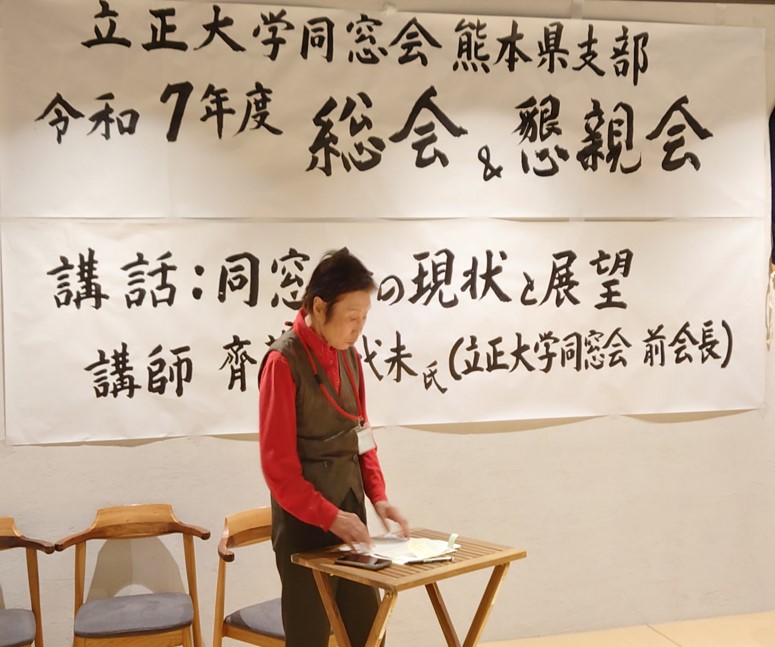 立正大学同窓会 熊本県支部
令和7年度 総会&懇親会
講話:同窓の現状と展望
講師 齊未氏(立正大学同窓会 前会長)